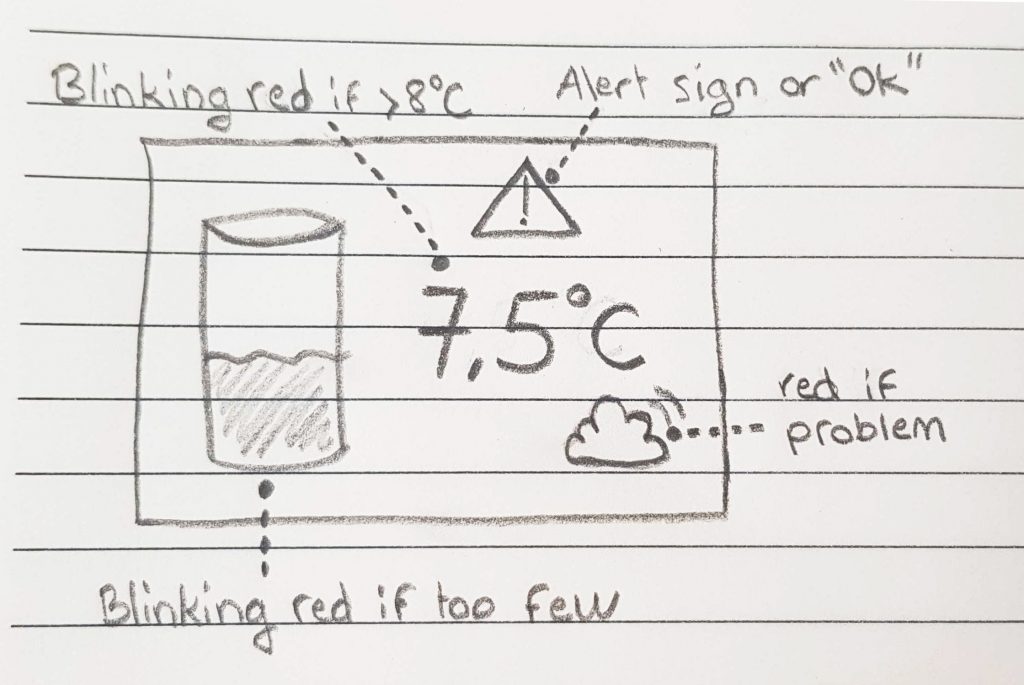 Blinking red if >8°C
Alert sign or "Ok"
!
7,5°C
red if
problem
Blinking red if too few